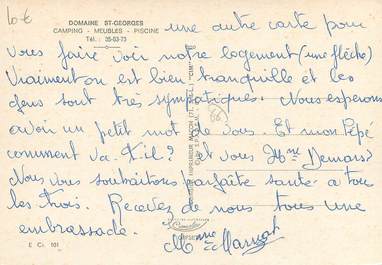 10 €
DOMAINE ST-GEORGES
CAMPING - MEUBLES - PISCINE
Tél. : 35-63-73
une autre carte pour
vous faire voir notre logement (une flèche)
Vraiment on est bien tranquille et les
gens sont très sympatiques. Nous esperons
avoir un petit mot de vous. Et mon Pépé
comment va-t-il? et vous Mme
Nous vous souhaitons parfaite sante a tous
les trois. Recevez de nous tous une
embrassade.
Mme
E Cı 101